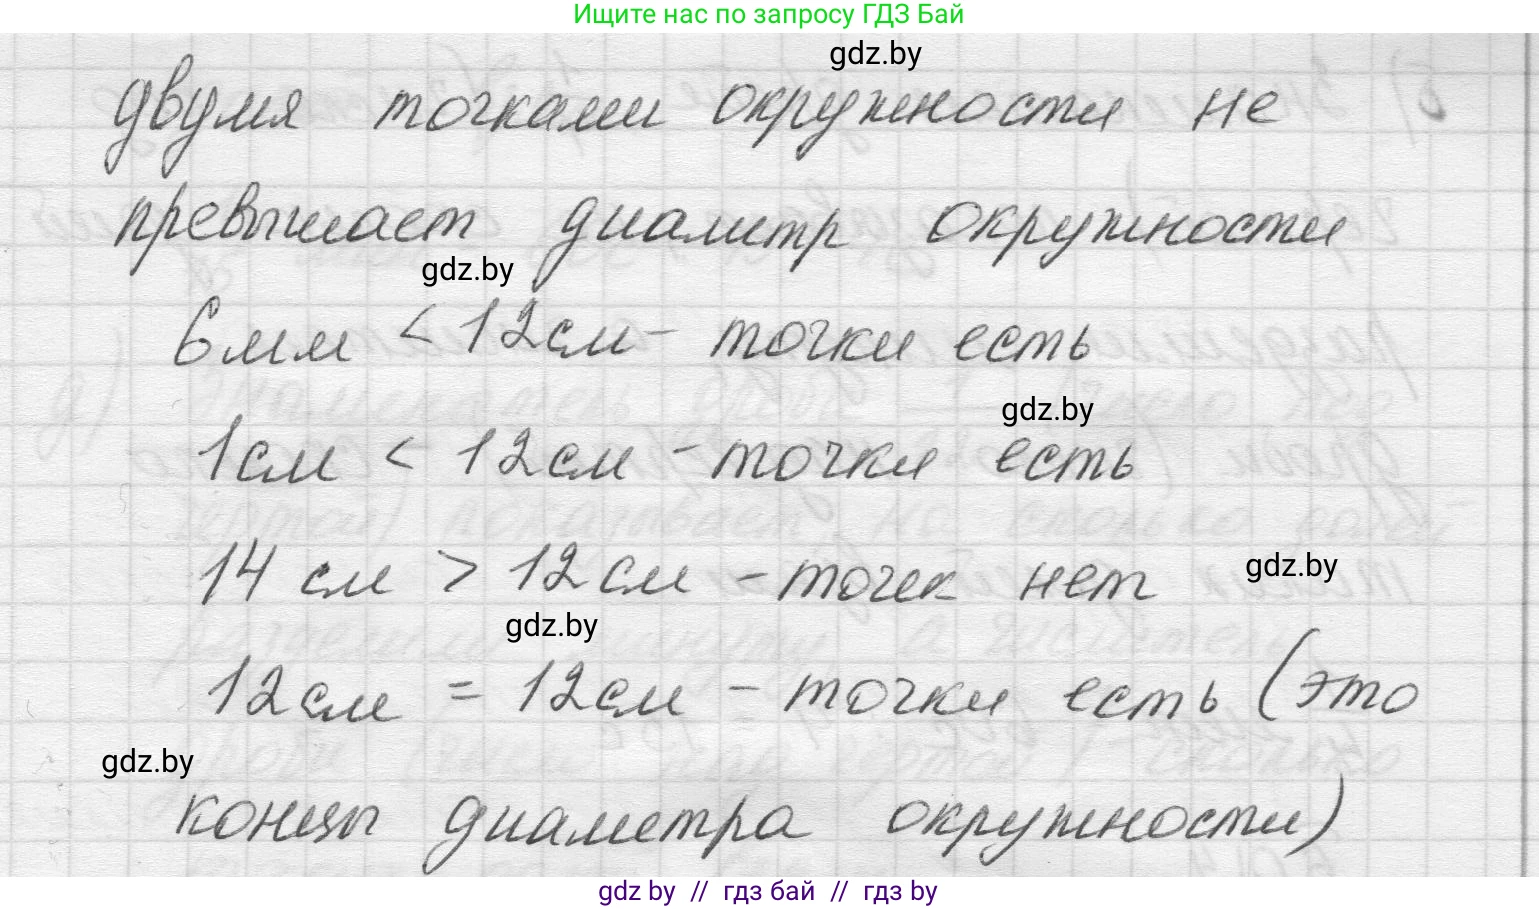 Ищите нас по запросу ГДЗ Бай
gdz.by
двумя точками окружности не
превышает диаметр окружности
gdz.by
6мм < 12см - точки есть
gdz.by
1см < 12см - точки есть
14 см > 12см - точек нет
gdz.by
gdz.by
12см = 12см - точки есть (это
gdz.by
концы диаметра окружности)
gdz by // гдз бай // гдз by